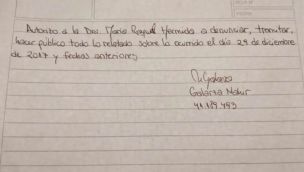 Autorizo a la Dra. María Raquel Hermida a denunciar, tramitar,
hacer público todo lo relatado sobre lo ocurrido el día 29 de diciembre
de 2017 y fechas anteriores
Galarza Nahir